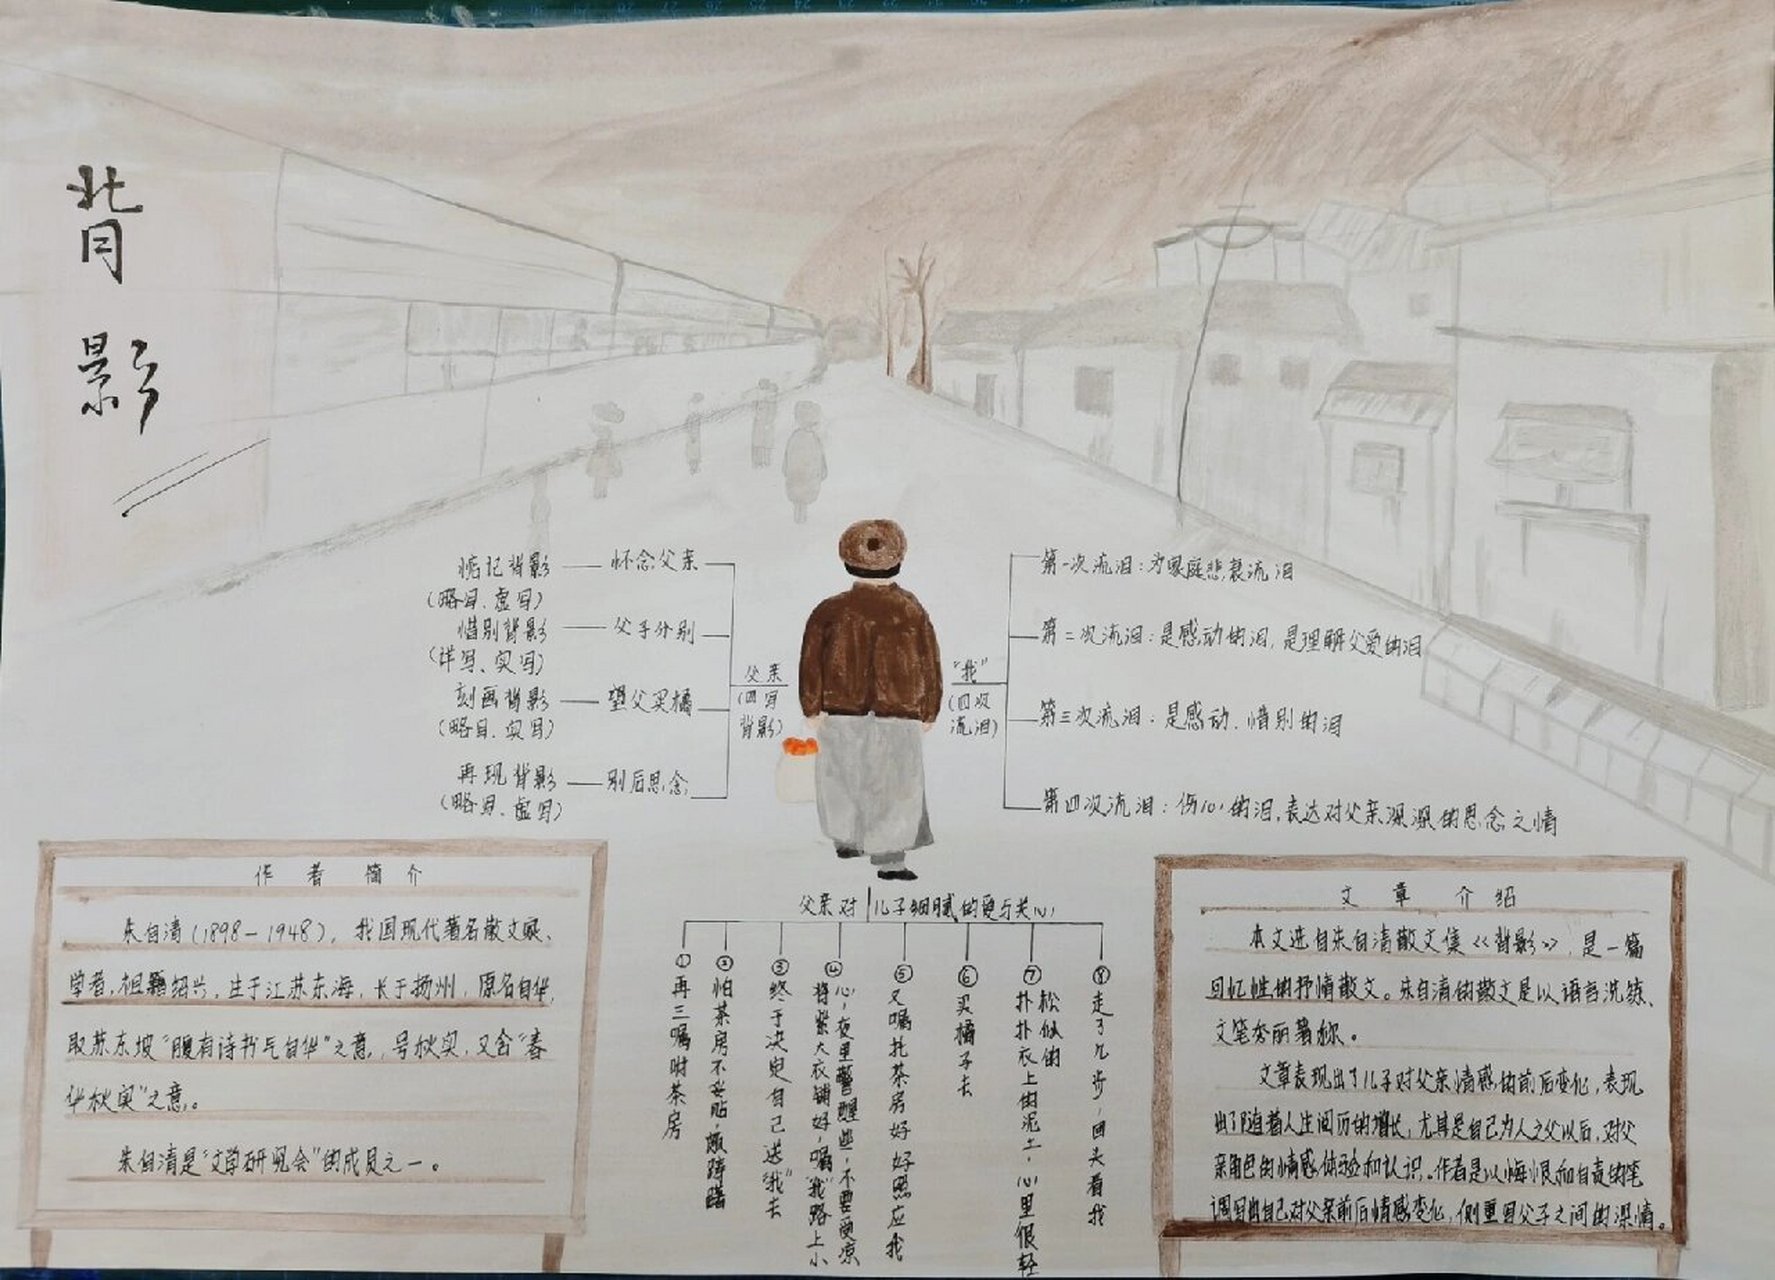 背影
惦记背影——怀念父亲
(略写、虚写)
惜别背影——父子分别
(详写、实写)
刻画背影——望父买橘
(略写、实写)
再现背影——别后思念
(略写、虚写)
父亲
(四写
背影)
"我"
(四次
流泪)
第一次流泪:为家庭悲哀流泪
第二次流泪:是感动的泪,是理解父爱的泪
第三次流泪:是感动、惜别的泪
第四次流泪:伤心的泪,表达对父亲深深的思念之情
父亲对儿子细腻的爱与关心
①再三嘱咐茶房
②怕茶房不妥贴,颇踌躇
③终于决定自己送"我"去
④将紫大衣铺好,嘱"我"路上小
心,夜里警醒些,不要受凉
⑤又嘱托茶房好好照应我
⑥买橘子去
⑦扑扑衣上的泥土,心里很轻
松似的
⑧走了几步,回头看我
作者简介
朱自清(1898-1948),我国现代著名散文家、
学者,祖籍绍兴,生于江苏东海,长于扬州,原名自华,
取苏东坡"腹有诗书气自华"之意,号秋实,又含"春
华秋实"之意。
朱自清是"文学研究会"的成员之一。
文章介绍
本文选自朱自清散文集《背影》,是一篇
回忆性的抒情散文。朱自清的散文是以语言洗练、
文笔秀丽著称。
文章表现出了儿子对父亲情感的前后变化,表现
出了随着人生阅历的增长,尤其是自己为人之父以后,对父
亲角色的情感体验和认识。作者是以悔恨和自责的笔
调写出自己对父亲前后情感变化,侧重写父子之间的深情。